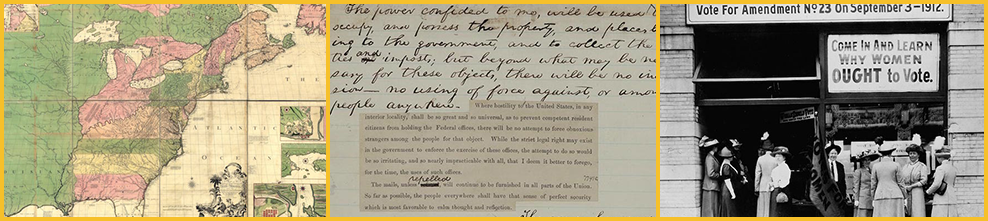 ATLANTIC
OCEAN
The power confided to me, will be used
occupy, and possess the property, and places
ing to the government, and to collect the
and
ties impost; but beyond what may be
sary for these objects, there will be no
sion — no using of force against, or
people anywhere.
Where hostility to the United States, in any
interior locality, shall be so great and so universal, as to prevent competent resident
citizens from holding the Federal offices, there will be no attempt to force obnoxious
strangers among the people for that object. While the strict legal right may exist
in the government to enforce the exercise of these offices, the attempt to do so would
be so irritating, and so nearly impracticable with all, that I deem it better to forego,
for the time, the uses of such offices.
repelled
The mails, unless will continue to be furnished in all parts of the Union.
So far as possible, the people everywhere shall have that sense of perfect security
which is most favorable to calm thought and reflection.
Vote For Amendment No 23 On September 3-1912.
COME IN AND LEARN
WHY WOMEN
OUGHT to VOTE.